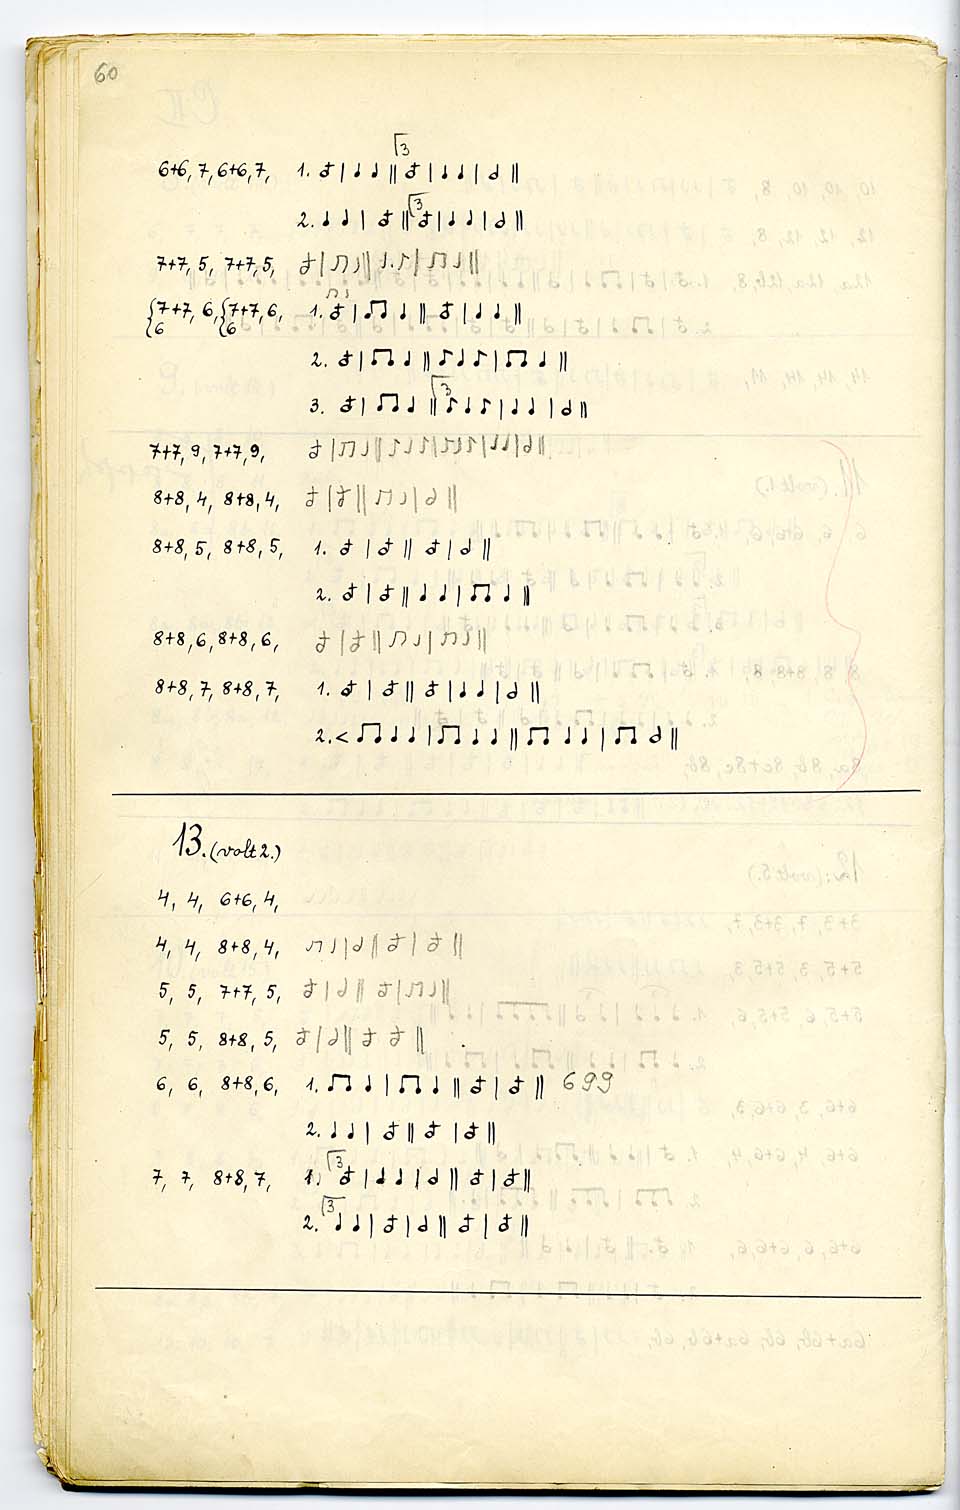 60
6+6, 7, 6+6, 7, 1. 3
2. 3
7+7, 5, 7+7, 5,
{7+7, 6, {7+7, 6, 1.
6 6
2.
3. 3
7+7, 9, 7+7, 9,
8+8, 4, 8+8, 4,
8+8, 5, 8+8, 5, 1.
2.
8+8, 6, 8+8, 6,
8+8, 7, 8+8, 7, 1.
2. <
13. (volt 2.)
4, 4, 6+6, 4,
4, 4, 8+8, 4,
5, 5, 7+7, 5,
5, 5, 8+8, 5,
6, 6, 8+8, 6, 1. 699
2.
7, 7, 8+8, 7, 1. 3
2. 3